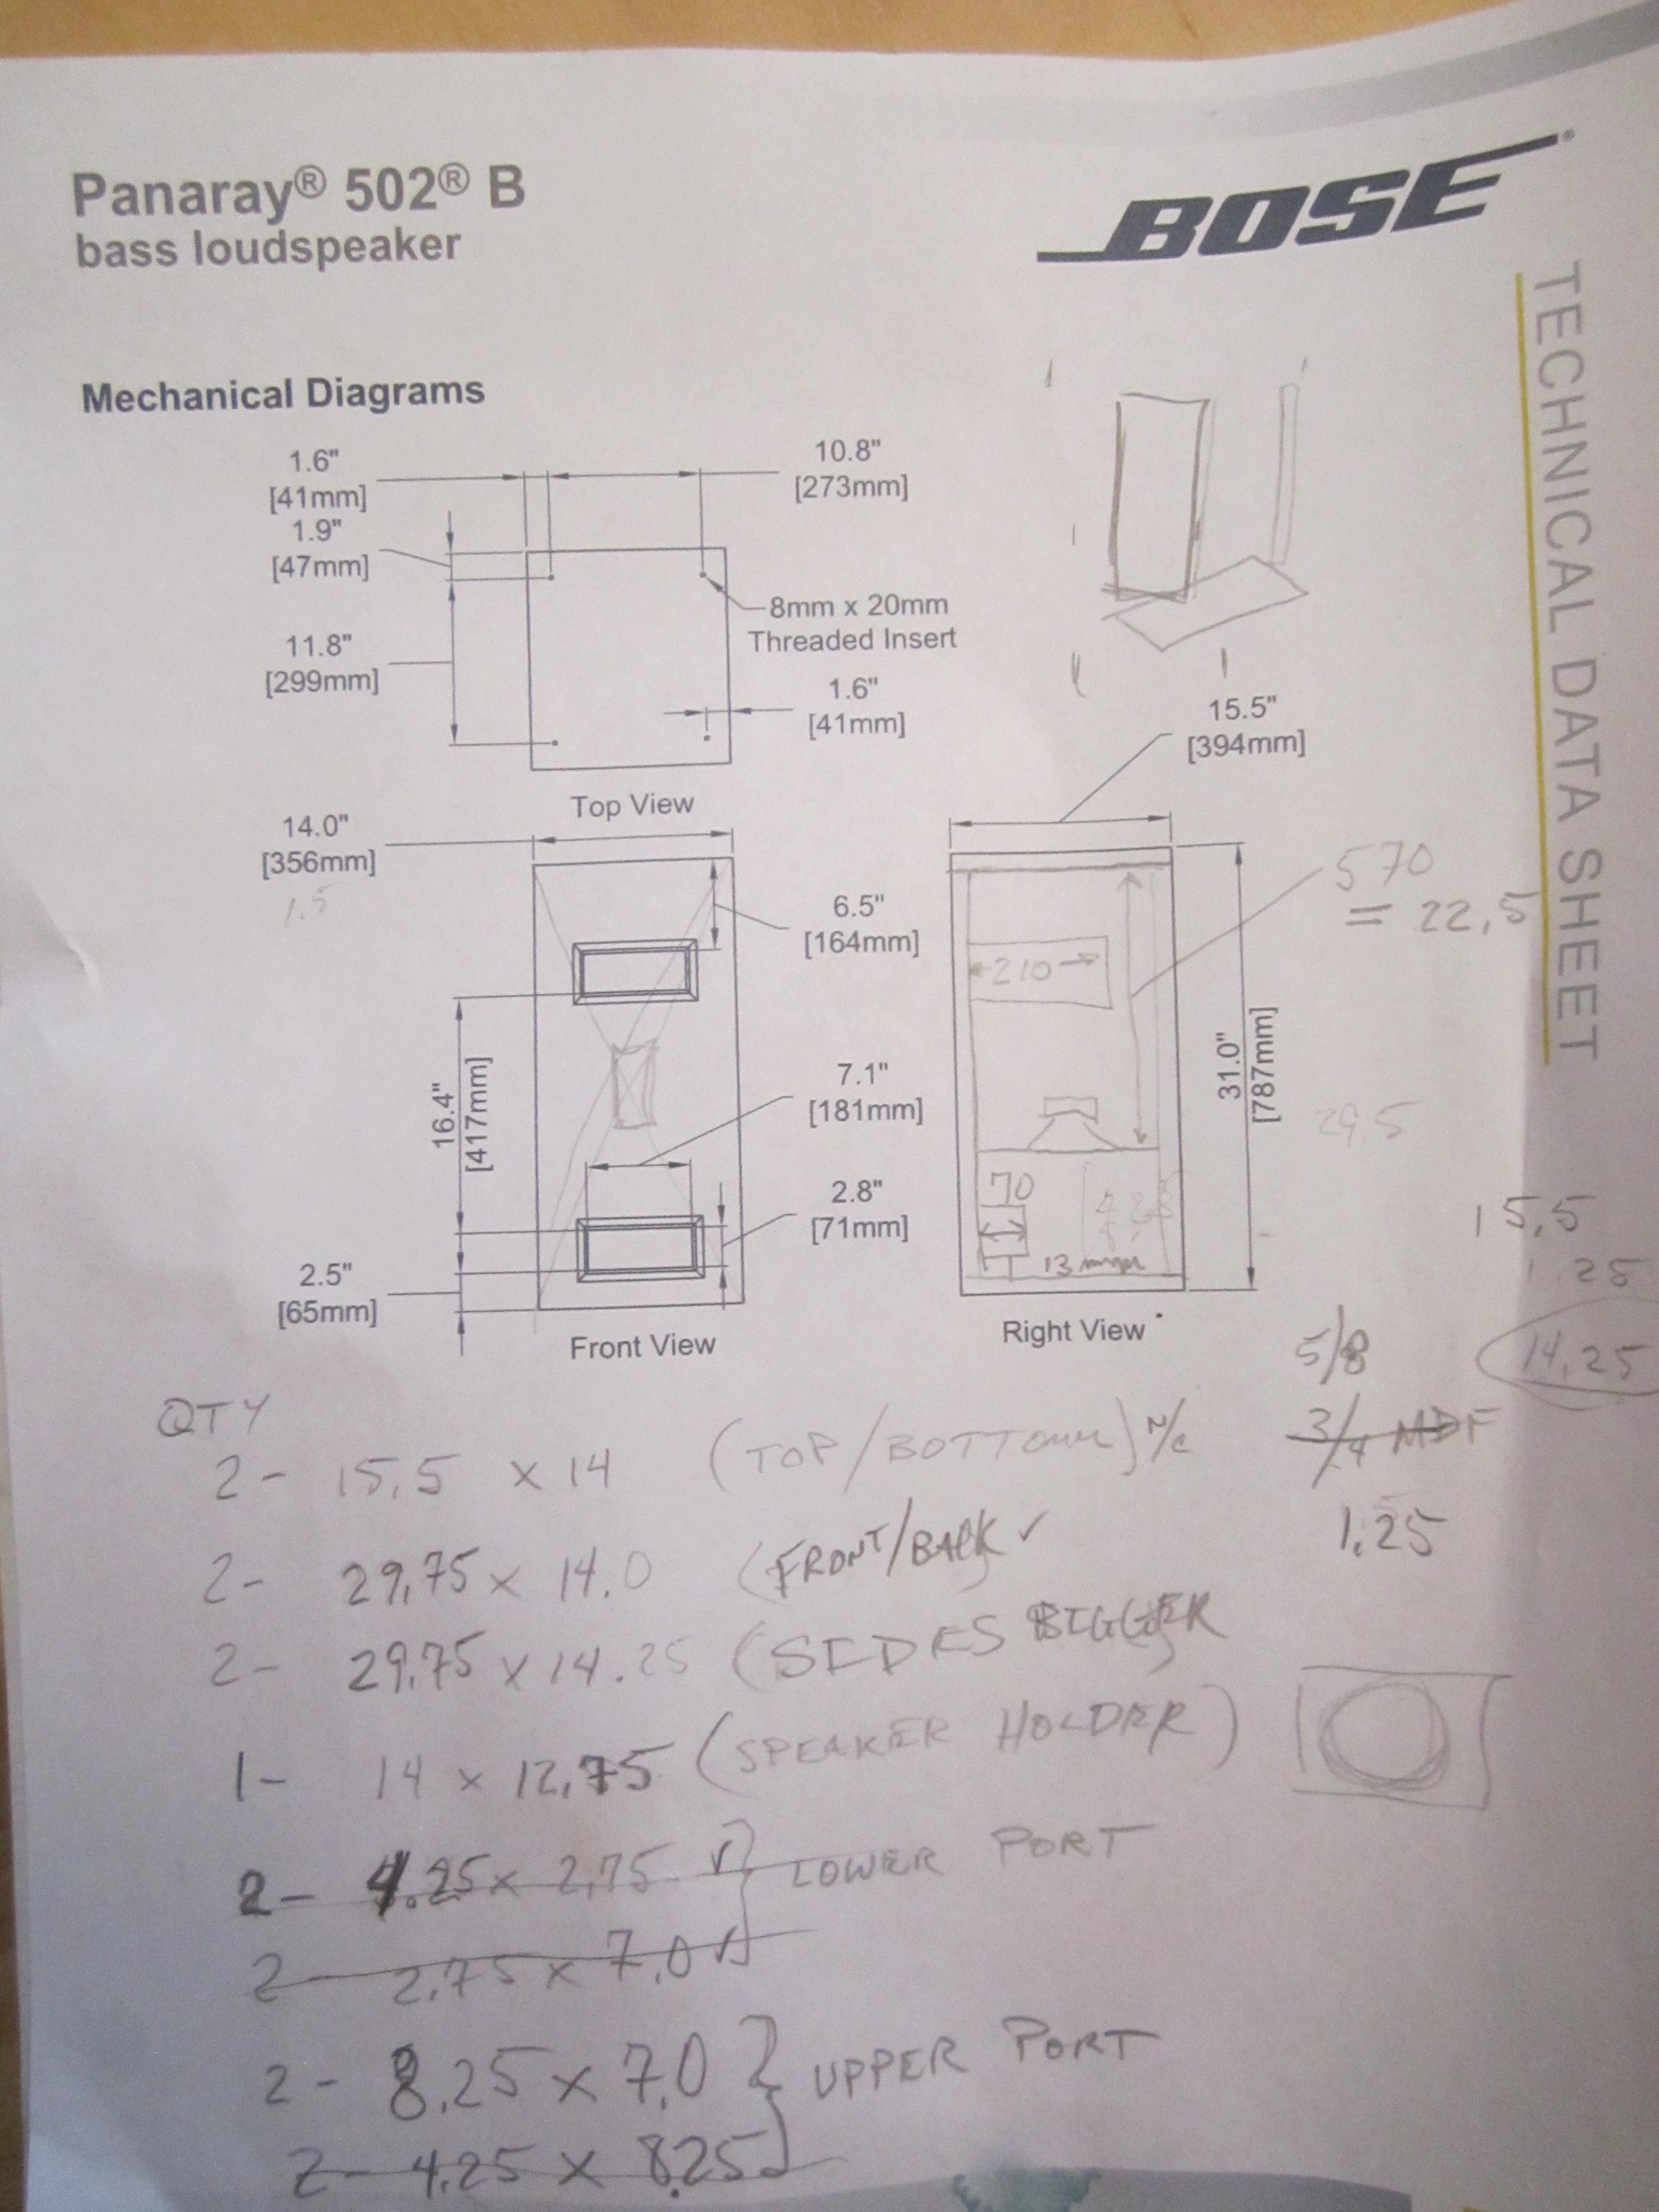 Panaray® 502® B
bass loudspeaker
BOSE®
TECHNICAL DATA SHEET
Mechanical Diagrams
1.6"
[41mm]
10.8"
[273mm]
1.9"
[47mm]
8mm x 20mm
Threaded Insert
11.8"
[299mm]
1.6"
[41mm]
Top View
15.5"
[394mm]
14.0"
[356mm]
1.5
6.5"
[164mm]
570
= 22,5
210
16.4"
[417mm]
7.1"
[181mm]
31.0"
[787mm]
29.5
2.8"
[71mm]
70
13
2.5"
[65mm]
Front View
Right View
15.5
1.25
14,25
5/8
3/4 MDF
1.25
QTY
2- 15.5 x 14 (TOP/BOTTOM) N/C
2- 29.75 x 14.0 (FRONT/BACK ✓
2- 29.75 x 14.25 (SIDES BIGGER
1- 14 x 12.75 (SPEAKER HOLDER)
2- 4.25 x 2.75 ✓ } LOWER PORT
2- 2.75 x 7.0 ✓
2- 8.25 x 7.0 } UPPER PORT
2- 4.25 x 8.25